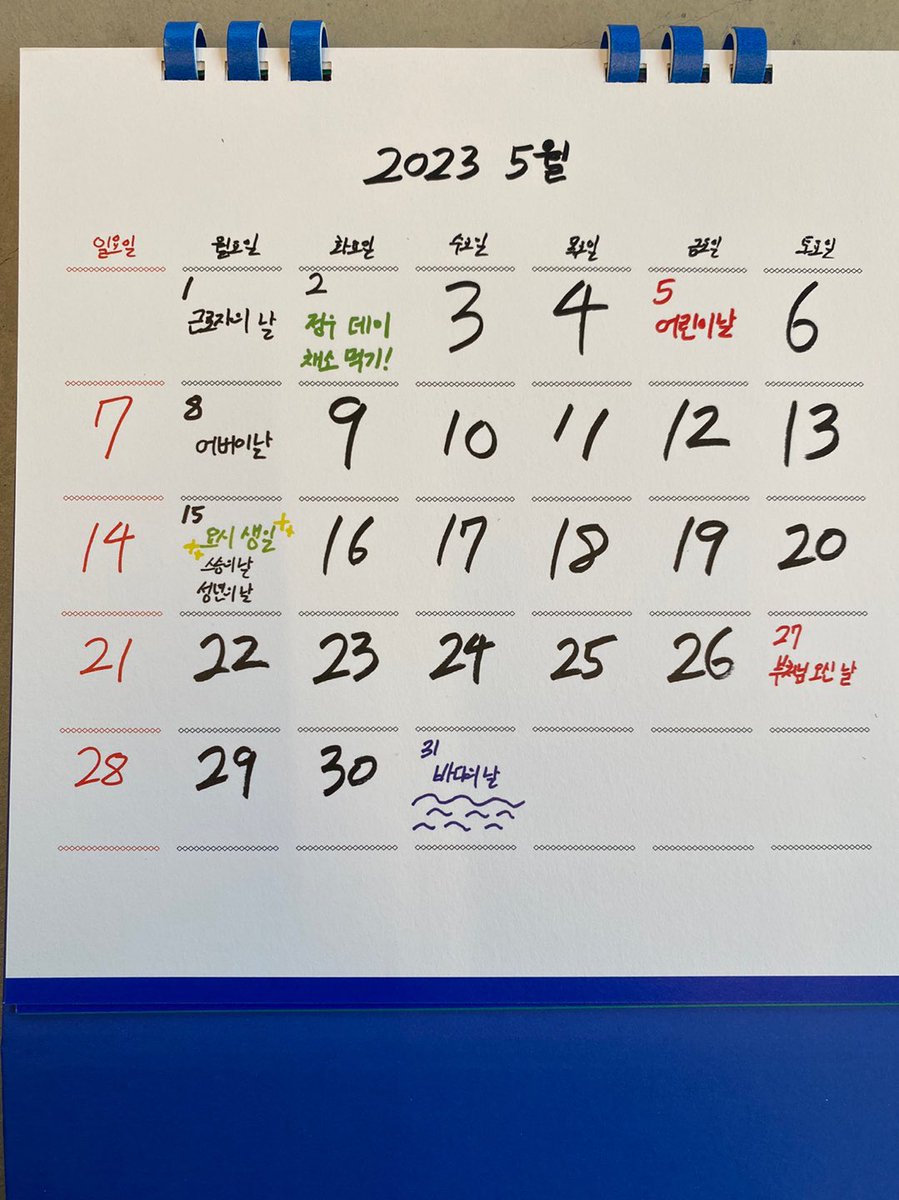 2023 5월
일요일 월요일 화요일 수요일 목요일 금요일 토요일
1 2 3 4 5 6
근로자의 날
정우 데이
채소 먹기!
어린이날
7 8 9 10 11 12 13
어버이날
14 15 16 17 18 19 20
도시 생일
스승의날
성년의 날
21 22 23 24 25 26 27
부처님 오신 날
28 29 30 31
바다의 날